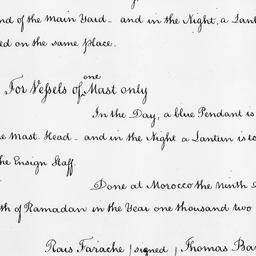 nd of the Main Yard - and in the Night, a Lant
ed on the same place.
For Vessels of one Mast only
In the Day, a blue Pendant is
e Mast Head - and in the Night a Lantern is to
he Ensign Staff.
Done at Morocco the ninth
th of Ramadan in the Year one thousand two
Rais Farache / signed / Thomas Ba